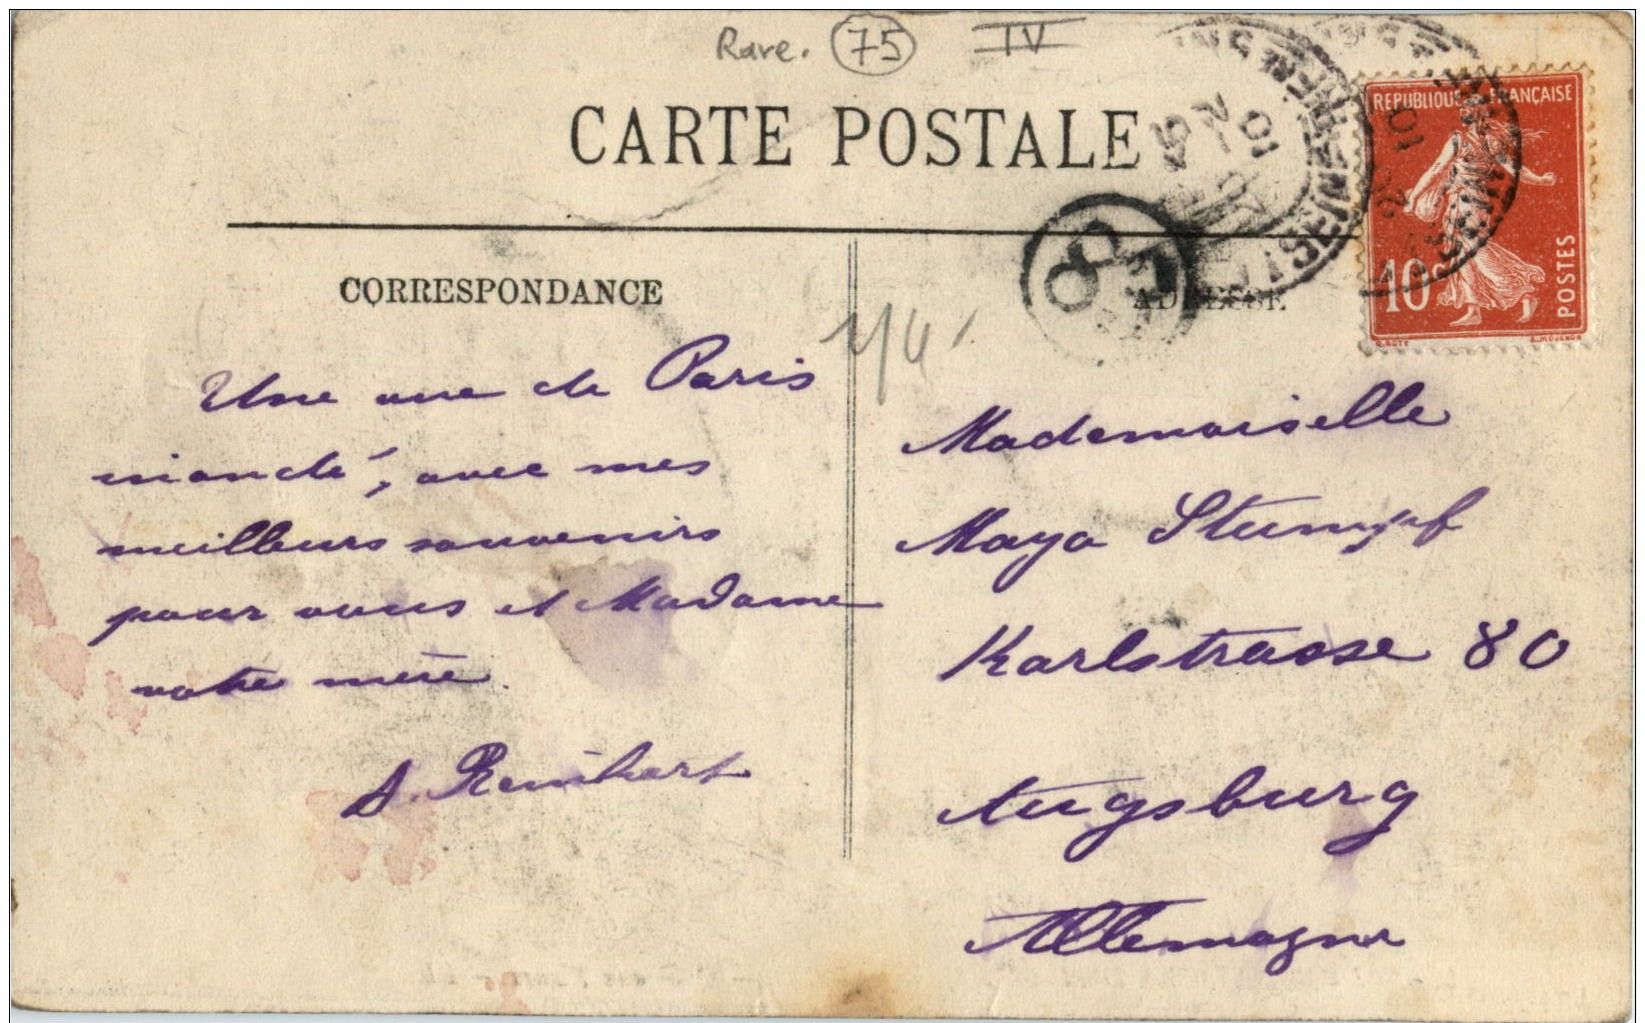 Rare. 75 IV
CARTE POSTALE
REPUBLIQUE FRANÇAISE
10c
POSTES
CORRESPONDANCE
ADRESSE
Une vue de Paris
inondé, avec mes
meilleurs souvenirs
pour vous et Madame
votre mère.
A. Reinhart
Mademoiselle
Maya Stumpf
Karlstrasse 80
Augsburg
Allemagne